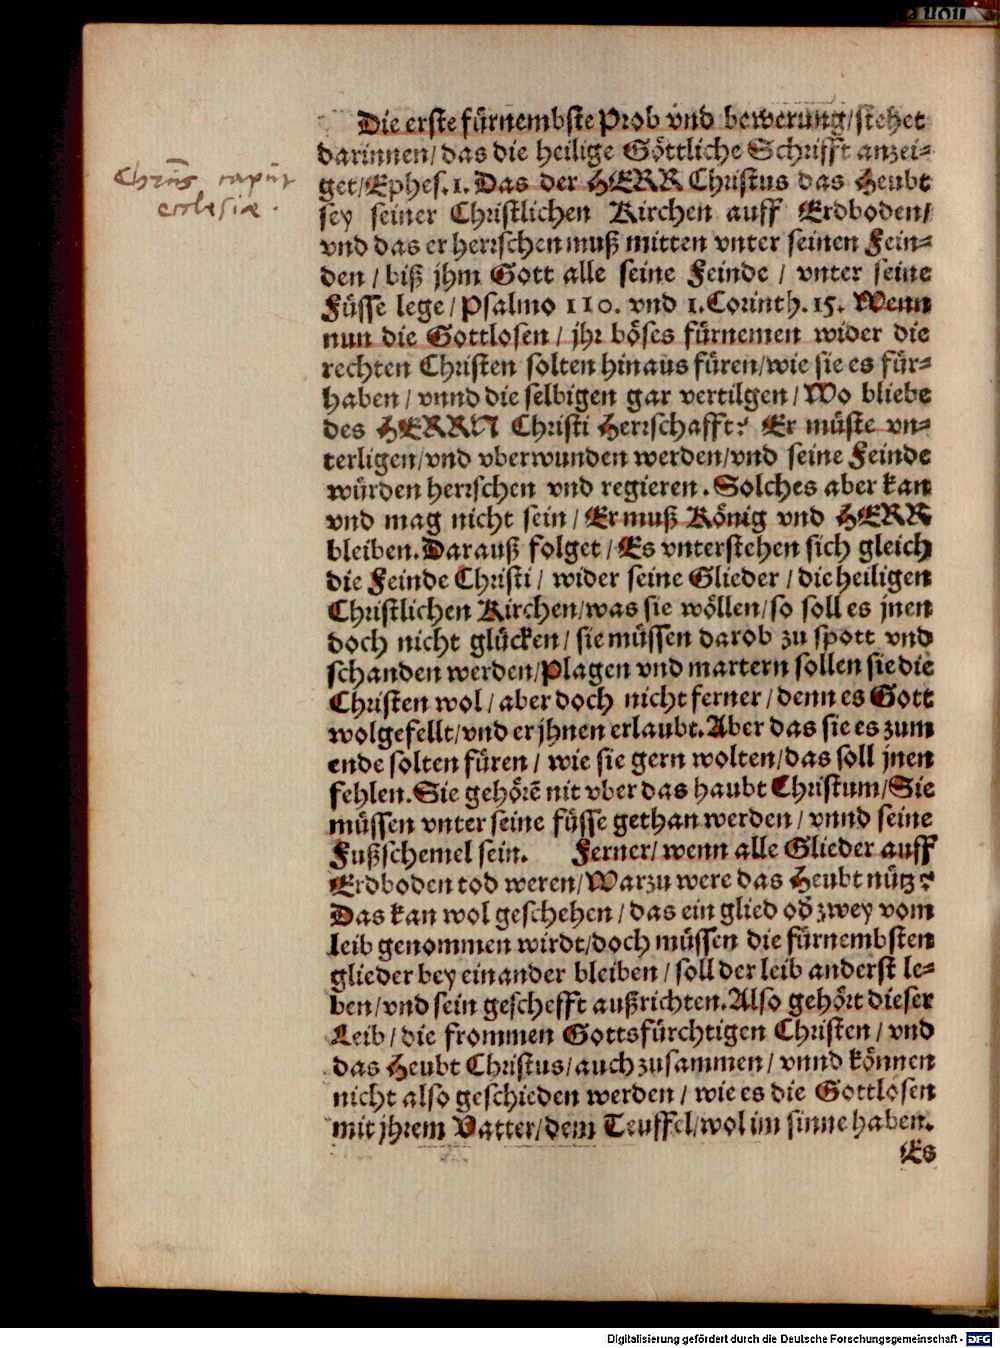 Die erste fürnembste Prob vnd bewerung/stehet
darinnen/das die heilige Göttliche Schrifft anzei=
get/Ephes.1. Das der HERR Christus das Heubt
sey seiner Christlichen Kirchen auff Erdboden/
vnd das er herrschen muß mitten vnter seinen Fein=
den/biß jhm Gott alle seine Feinde/vnter seine
Füsse lege/Psalmo 110. vnd 1.Corinth.15. Wenn
nun die Gottlosen/jhr böses fürnemen wider die
rechten Christen solten hinaus füren/wie sie es für=
haben/vnnd die selbigen gar vertilgen/Wo bliebe
des HERRN Christi Herrschafft? Er müste vn=
terligen/vnd vberwunden werden/vnd seine Feinde
würden herrschen vnd regieren. Solches aber kan
vnd mag nicht sein/Er muß König vnd HERR
bleiben. Darauß folget/Es vnterstehen sich gleich
die Feinde Christi/wider seine Glieder/die heiligen
Christlichen Kirchen/was sie wöllen/so soll es jnen
doch nicht glücken/sie müssen darob zu spott vnd
schanden werden/Plagen vnd martern sollen sie die
Christen wol/aber doch nicht ferner/denn es Gott
wolgefellt/vnd er jhnen erlaubt. Aber das sie es zum
ende solten füren/wie sie gern wolten/das soll jnen
fehlen. Sie gehörẽ nit vber das haubt Christum/Sie
müssen vnter seine füsse gethan werden/vnnd seine
Fußschemel sein. Ferner/wenn alle Glieder auff
Erdboden tod weren/Warzu were das Heubt nütz?
Das kan wol geschehen/das ein glied od̃ zwey vom
leib genommen wirdt/doch müssen die fürnembsten
glieder bey einander bleiben/soll der leib anderst le=
ben/vnd sein geschefft außrichten. Also gehört dieser
Leib/die frommen Gottsfürchtigen Christen/vnd
das Heubt Christus/auch zusammen/vnnd können
nicht also geschieden werden/wie es die Gottlosen
mit jhrem Vatter/dem Teuffel/wol im sinne haben.
Es
Chrūs caput
ecclesiæ.
Digitalisierung gefördert durch die Deutsche Forschungsgemeinschaft - DFG